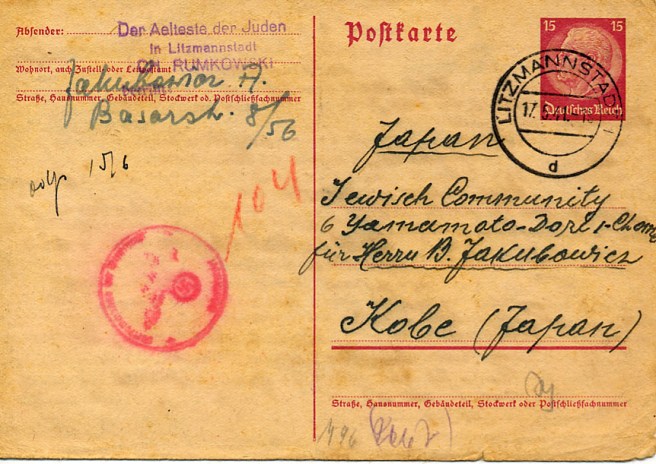 Absender:
Der Aelteste der Juden
in Litzmannstadt
CH. RUMKOWSKI
Wohnort, auch Zustell- oder Leitpostamt
A.
Straße, Hausnummer, Gebäudeteil, Stockwerk od. Postschließfachnummer
8/56
15/6
104
Postkarte
15 15
Deutsches Reich
LITZMANNSTADT
17.
d
Japan
Jewisch Community
6 Yamamoto-Dori 1-Chome
für Herrn B. Jakubowicz
Kobe (Japan)
Straße, Hausnummer, Gebäudeteil, Stockwerk oder Postschließfachnummer